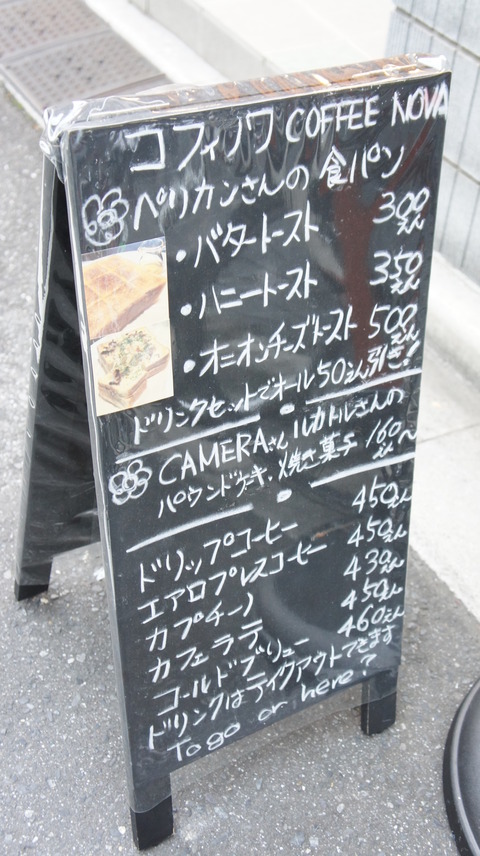 コフィノワ COFFEE NOVA
ペリカンさんの食パン
・バタートースト 300えん
・ハニートースト 350えん
・オニオンチーズトースト 500えん
ドリンクセットでオール50えん引き!
CAMERAさんルカドルさんの
パウンドケーキ、焼き菓子 160えん〜
ドリップコーヒー 450えん
エアロプレスコーヒー 450えん
カプチーノ 430えん
カフェラテ 450えん
コールドブリュー 460えん
ドリンクはテイクアウトできます
To go or here?